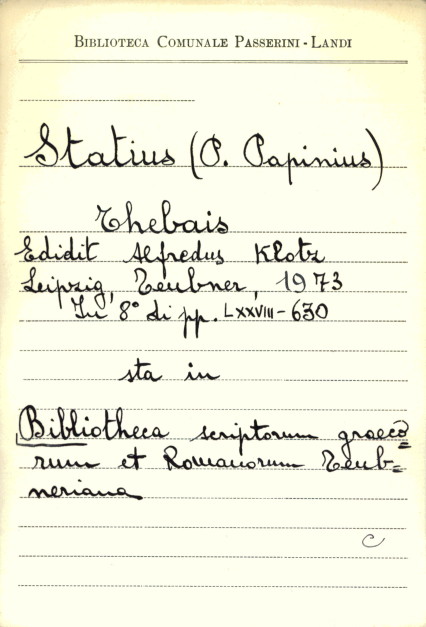 BIBLIOTECA COMUNALE PASSERINI - LANDI
Statius (P. Papinius)
Thebais
Edidit Alfredus Klotz
Leipzig, Teubner, 1973
In 8° di pp. LXXVIII - 630
sta in
Bibliotheca scriptorum graeco=
rum et Romanorum Teub=
neriana
C